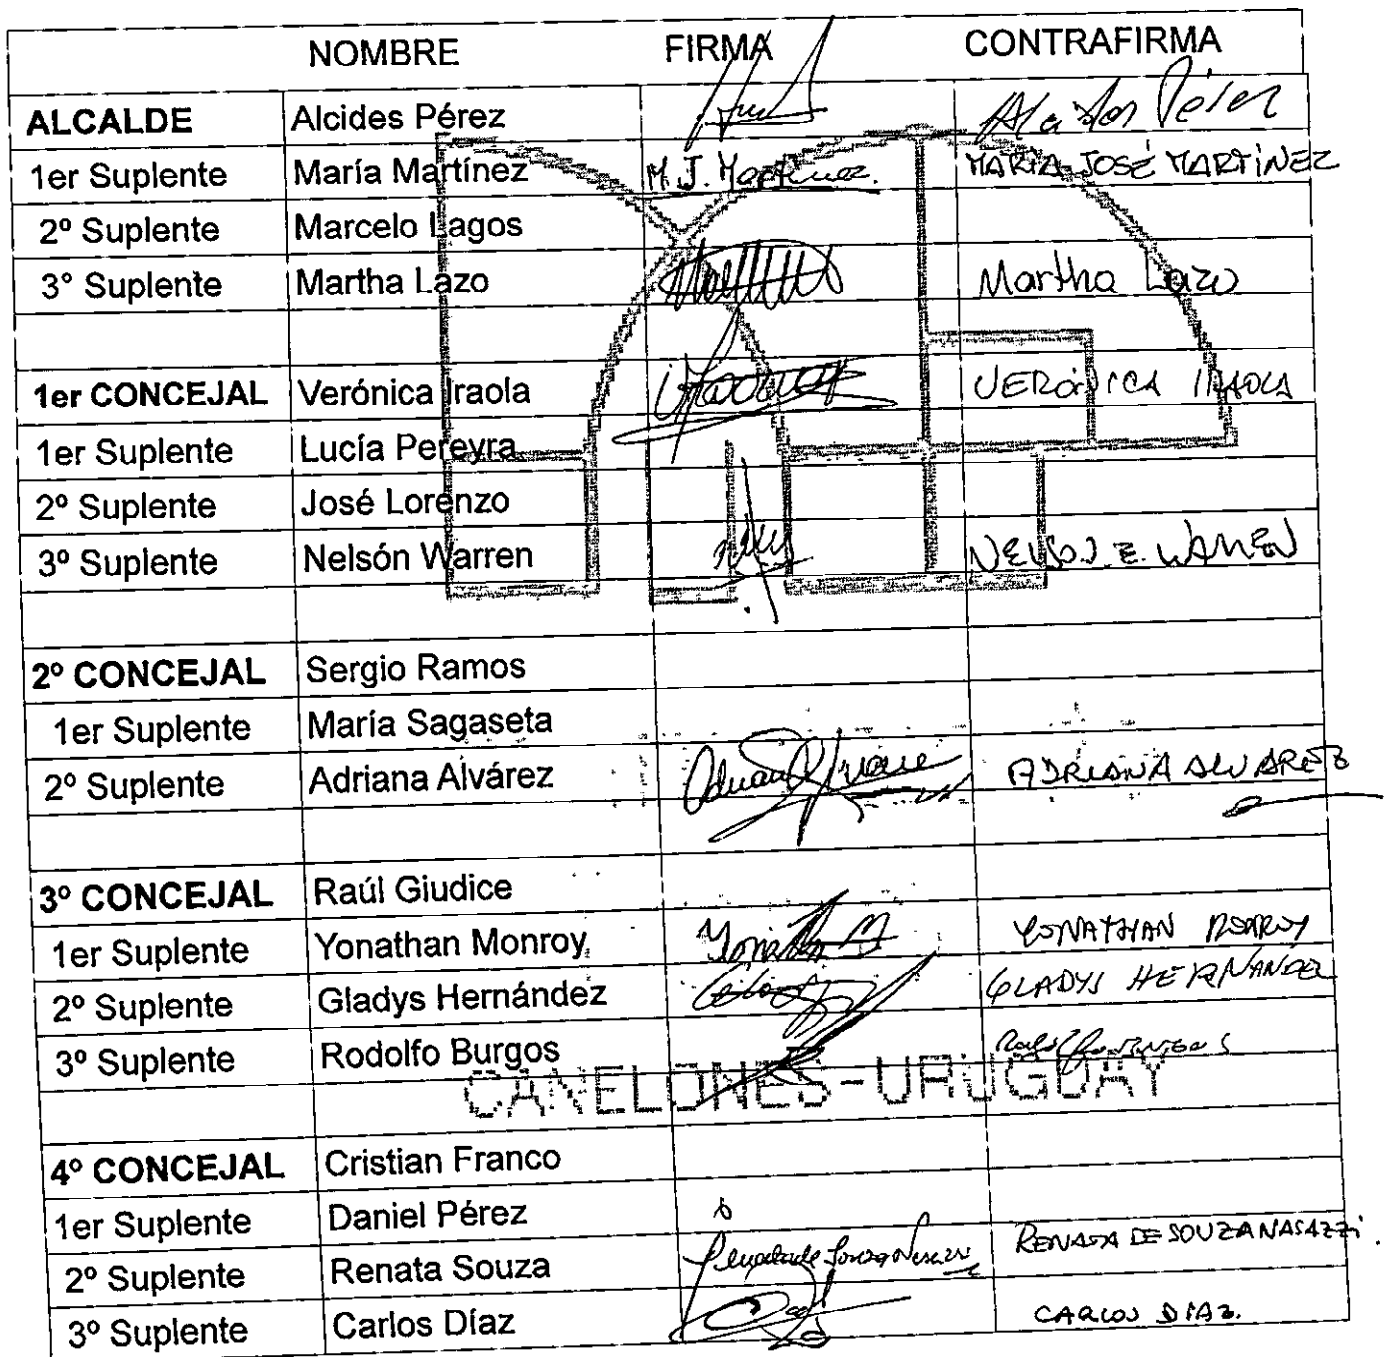 NOMBRE FIRMA CONTRAFIRMA
ALCALDE Alcides Pérez Alcides Pérez
1er Suplente María Martínez M. J. Martínez. MARÍA JOSÉ MARTÍNEZ
2º Suplente Marcelo Lagos
3° Suplente Martha Lazo Martha Lazo
1er CONCEJAL Verónica Iraola VERÓNICA IRAOLA
1er Suplente Lucía Pereyra
2º Suplente José Lorenzo
3º Suplente Nelsón Warren NELSON E. WARREN
2º CONCEJAL Sergio Ramos
1er Suplente María Sagaseta
2º Suplente Adriana Alvárez ADRIANA ALVAREZ
3º CONCEJAL Raúl Giudice
1er Suplente Yonathan Monroy YONATHAN MONROY
2º Suplente Gladys Hernández GLADYS HERNANDEZ
3º Suplente Rodolfo Burgos
CANELONES-URUGUAY
4º CONCEJAL Cristian Franco
1er Suplente Daniel Pérez
2º Suplente Renata Souza RENATA DE SOUZA NASAZZI.
3º Suplente Carlos Díaz CARLOS DÍAZ.